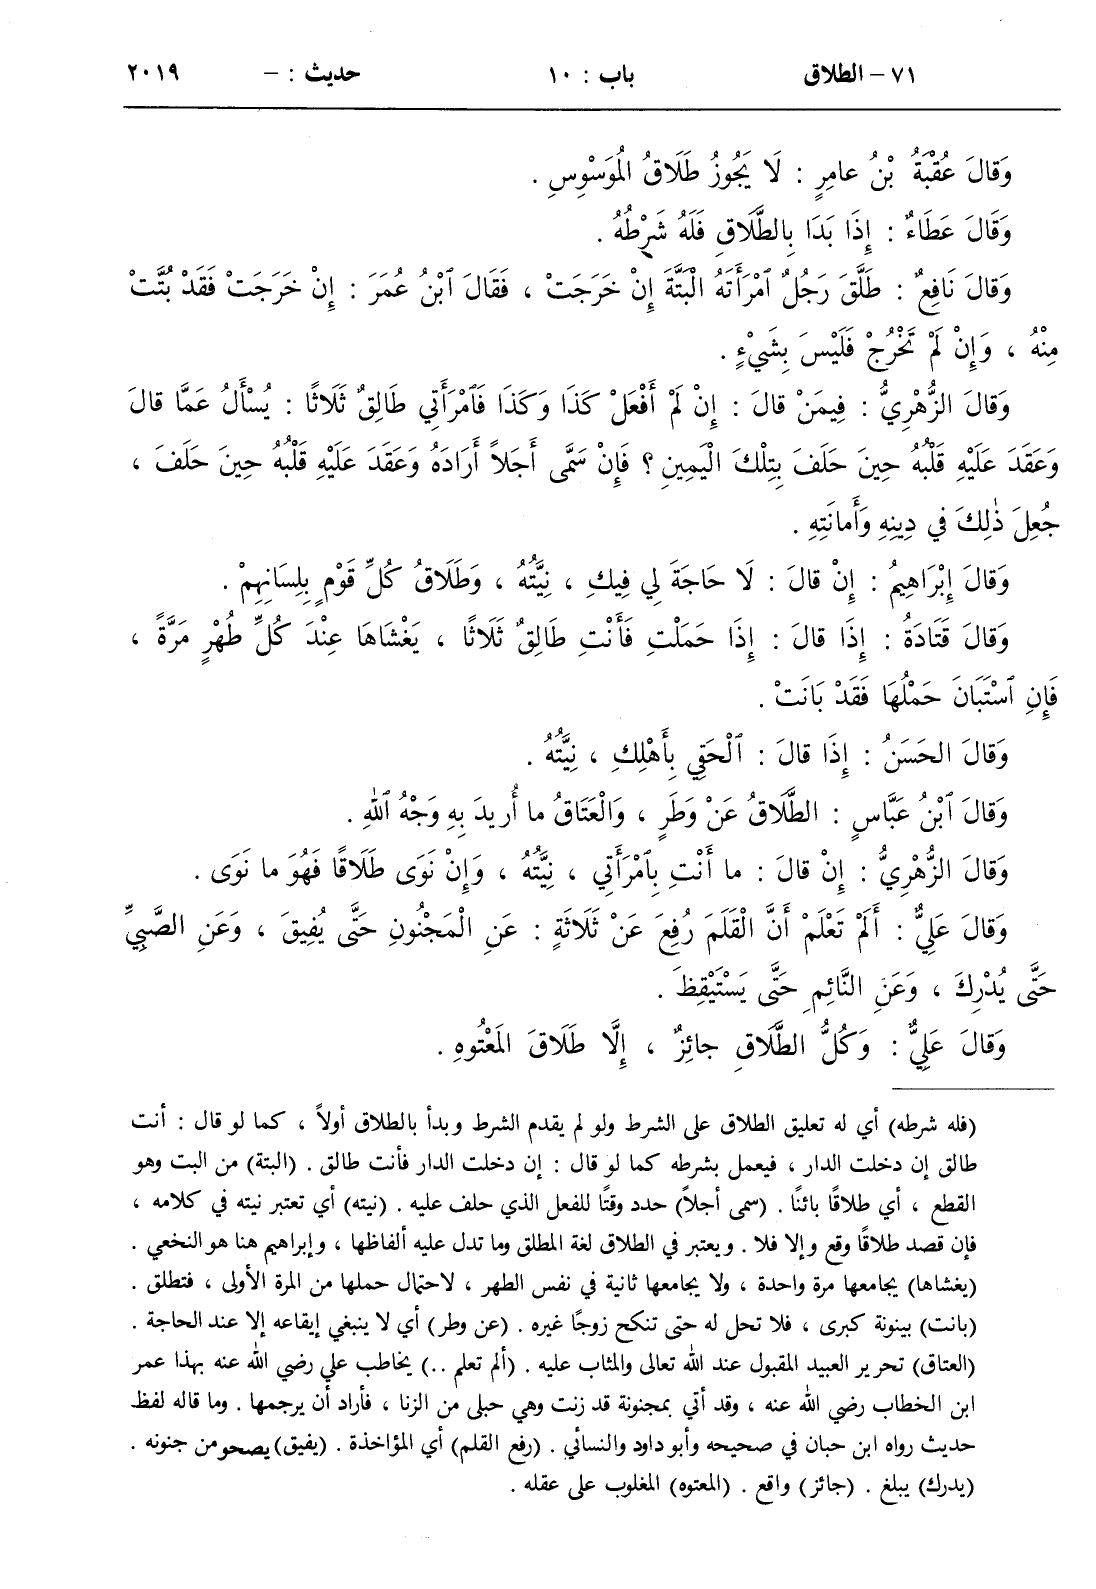 ٧١ - الطلاق باب : ١٠ حديث : - ٢٠١٩
وَقالَ عُقْبَةُ بْنُ عامِرٍ : لَا يَجُوزُ طَلَاقُ الْمُوَسْوِسِ .
وَقَالَ عَطَاءٌ : إِذَا بَدَا بِالطَّلَاقِ فَلَهُ شَرْطُهُ .
وَقالَ نَافِعٌ : طَلَّقَ رَجُلٌ ٱمْرَأَتَهُ الْبَتَّةَ إِنْ خَرَجَتْ ، فَقَالَ ٱبْنُ عُمَرَ : إِنْ خَرَجَتْ فَقَدْ بُتَّتْ
مِنْهُ ، وَإِنْ لَمْ تَخْرُجْ فَلَيْسَ بِشَيْءٍ .
وَقالَ الزُّهْرِيُّ : فِيمَنْ قالَ : إِنْ لَمْ أَفْعَلْ كَذَا وَكَذَا فَٱمْرَأَتِي طَالِقٌ ثَلَاثًا : يُسْأَلُ عَمَّا قالَ
وَعَقَدَ عَلَيْهِ قَلْبُهُ حِينَ حَلَفَ بِتِلْكَ الْيَمِينِ ؟ فَإِنْ سَمَّى أَجَلاً أَرَادَهُ وَعَقَدَ عَلَيْهِ قَلْبُهُ حِينَ حَلَفَ ،
جُعِلَ ذٰلِكَ في دِينِهِ وَأَمانَتِهِ .
وَقالَ إِبْرَاهِيمُ : إِنْ قالَ : لَا حَاجَةَ لِي فِيكِ ، نِيَّتُهُ ، وَطَلَاقُ كُلِّ قَوْمٍ بِلِسَانِهِمْ .
وَقالَ قَتَادَةُ : إِذَا قالَ : إِذَا حَمَلْتِ فَأَنْتِ طَالِقٌ ثَلَاثًا ، يَغْشَاهَا عِنْدَ كُلِّ طُهْرٍ مَرَّةً ،
فَإِنِ ٱسْتَبَانَ حَمْلُهَا فَقَدْ بَانَتْ .
وَقالَ الحَسَنُ : إِذَا قالَ : ٱلْحَقِي بِأَهْلِكِ ، نِيَّتُهُ .
وَقالَ ٱبْنُ عَبَّاسٍ : الطَّلَاقُ عَنْ وَطَرٍ ، وَالْعَتَاقُ ما أُرِيدَ بِهِ وَجْهُ ٱللهِ .
وَقالَ الزُّهْرِيُّ : إِنْ قالَ : ما أَنْتِ بِٱمْرَأَتِي ، نِيَّتُهُ ، وَإِنْ نَوَى طَلَاقًا فَهُوَ ما نَوَى .
وَقالَ عَلِيٌّ : أَلَمْ تَعْلَمْ أَنَّ الْقَلَمَ رُفِعَ عَنْ ثَلَاثَةٍ : عَنِ الْمَجْنُونِ حَتَّى يُفِيقَ ، وَعَنِ الصَّبِيِّ
حَتَّى يُدْرِكَ ، وَعَنِ النَّائِمِ حَتَّى يَسْتَيْقِظَ .
وَقالَ عَلِيٌّ : وَكُلُّ الطَّلَاقِ جائِزٌ ، إِلَّا طَلَاقَ المَعْتُوهِ .
(فله شرطه) أي له تعليق الطلاق على الشرط ولو لم يقدم الشرط وبدأ بالطلاق أولاً ، كما لو قال : أنت
طالق إن دخلت الدار ، فيعمل بشرطه كما لو قال : إن دخلت الدار فأنت طالق . (البتة) من البت وهو
القطع ، أي طلاقًا بائنًا . (سمى أجلاً) حدد وقتًا للفعل الذي حلف عليه . (نيته) أي تعتبر نيته في كلامه ،
فإن قصد طلاقًا وقع وإلا فلا . ويعتبر في الطلاق لغة المطلق وما تدل عليه ألفاظها ، وإبراهيم هنا هو النخعي .
(يغشاها) يجامعها مرة واحدة ، ولا يجامعها ثانية في نفس الطهر ، لاحتمال حملها من المرة الأولى ، فتطلق .
(بانت) بينونة كبرى ، فلا تحل له حتى تنكح زوجًا غيره . (عن وطر) أي لا ينبغي إيقاعه إلا عند الحاجة .
(العتاق) تحرير العبيد المقبول عند الله تعالى والمثاب عليه . (ألم تعلم ..) يخاطب علي رضي الله عنه بهذا عمر
ابن الخطاب رضي الله عنه ، وقد أتي بمجنونة قد زنت وهي حبلى من الزنا ، فأراد أن يرجمها . وما قاله لفظ
حديث رواه ابن حبان في صحيحه وأبو داود والنسائي . (رفع القلم) أي المؤاخذة . (يفيق) يصحو من جنونه .
(يدرك) يبلغ . (جائز) واقع . (المعتوه) المغلوب على عقله .